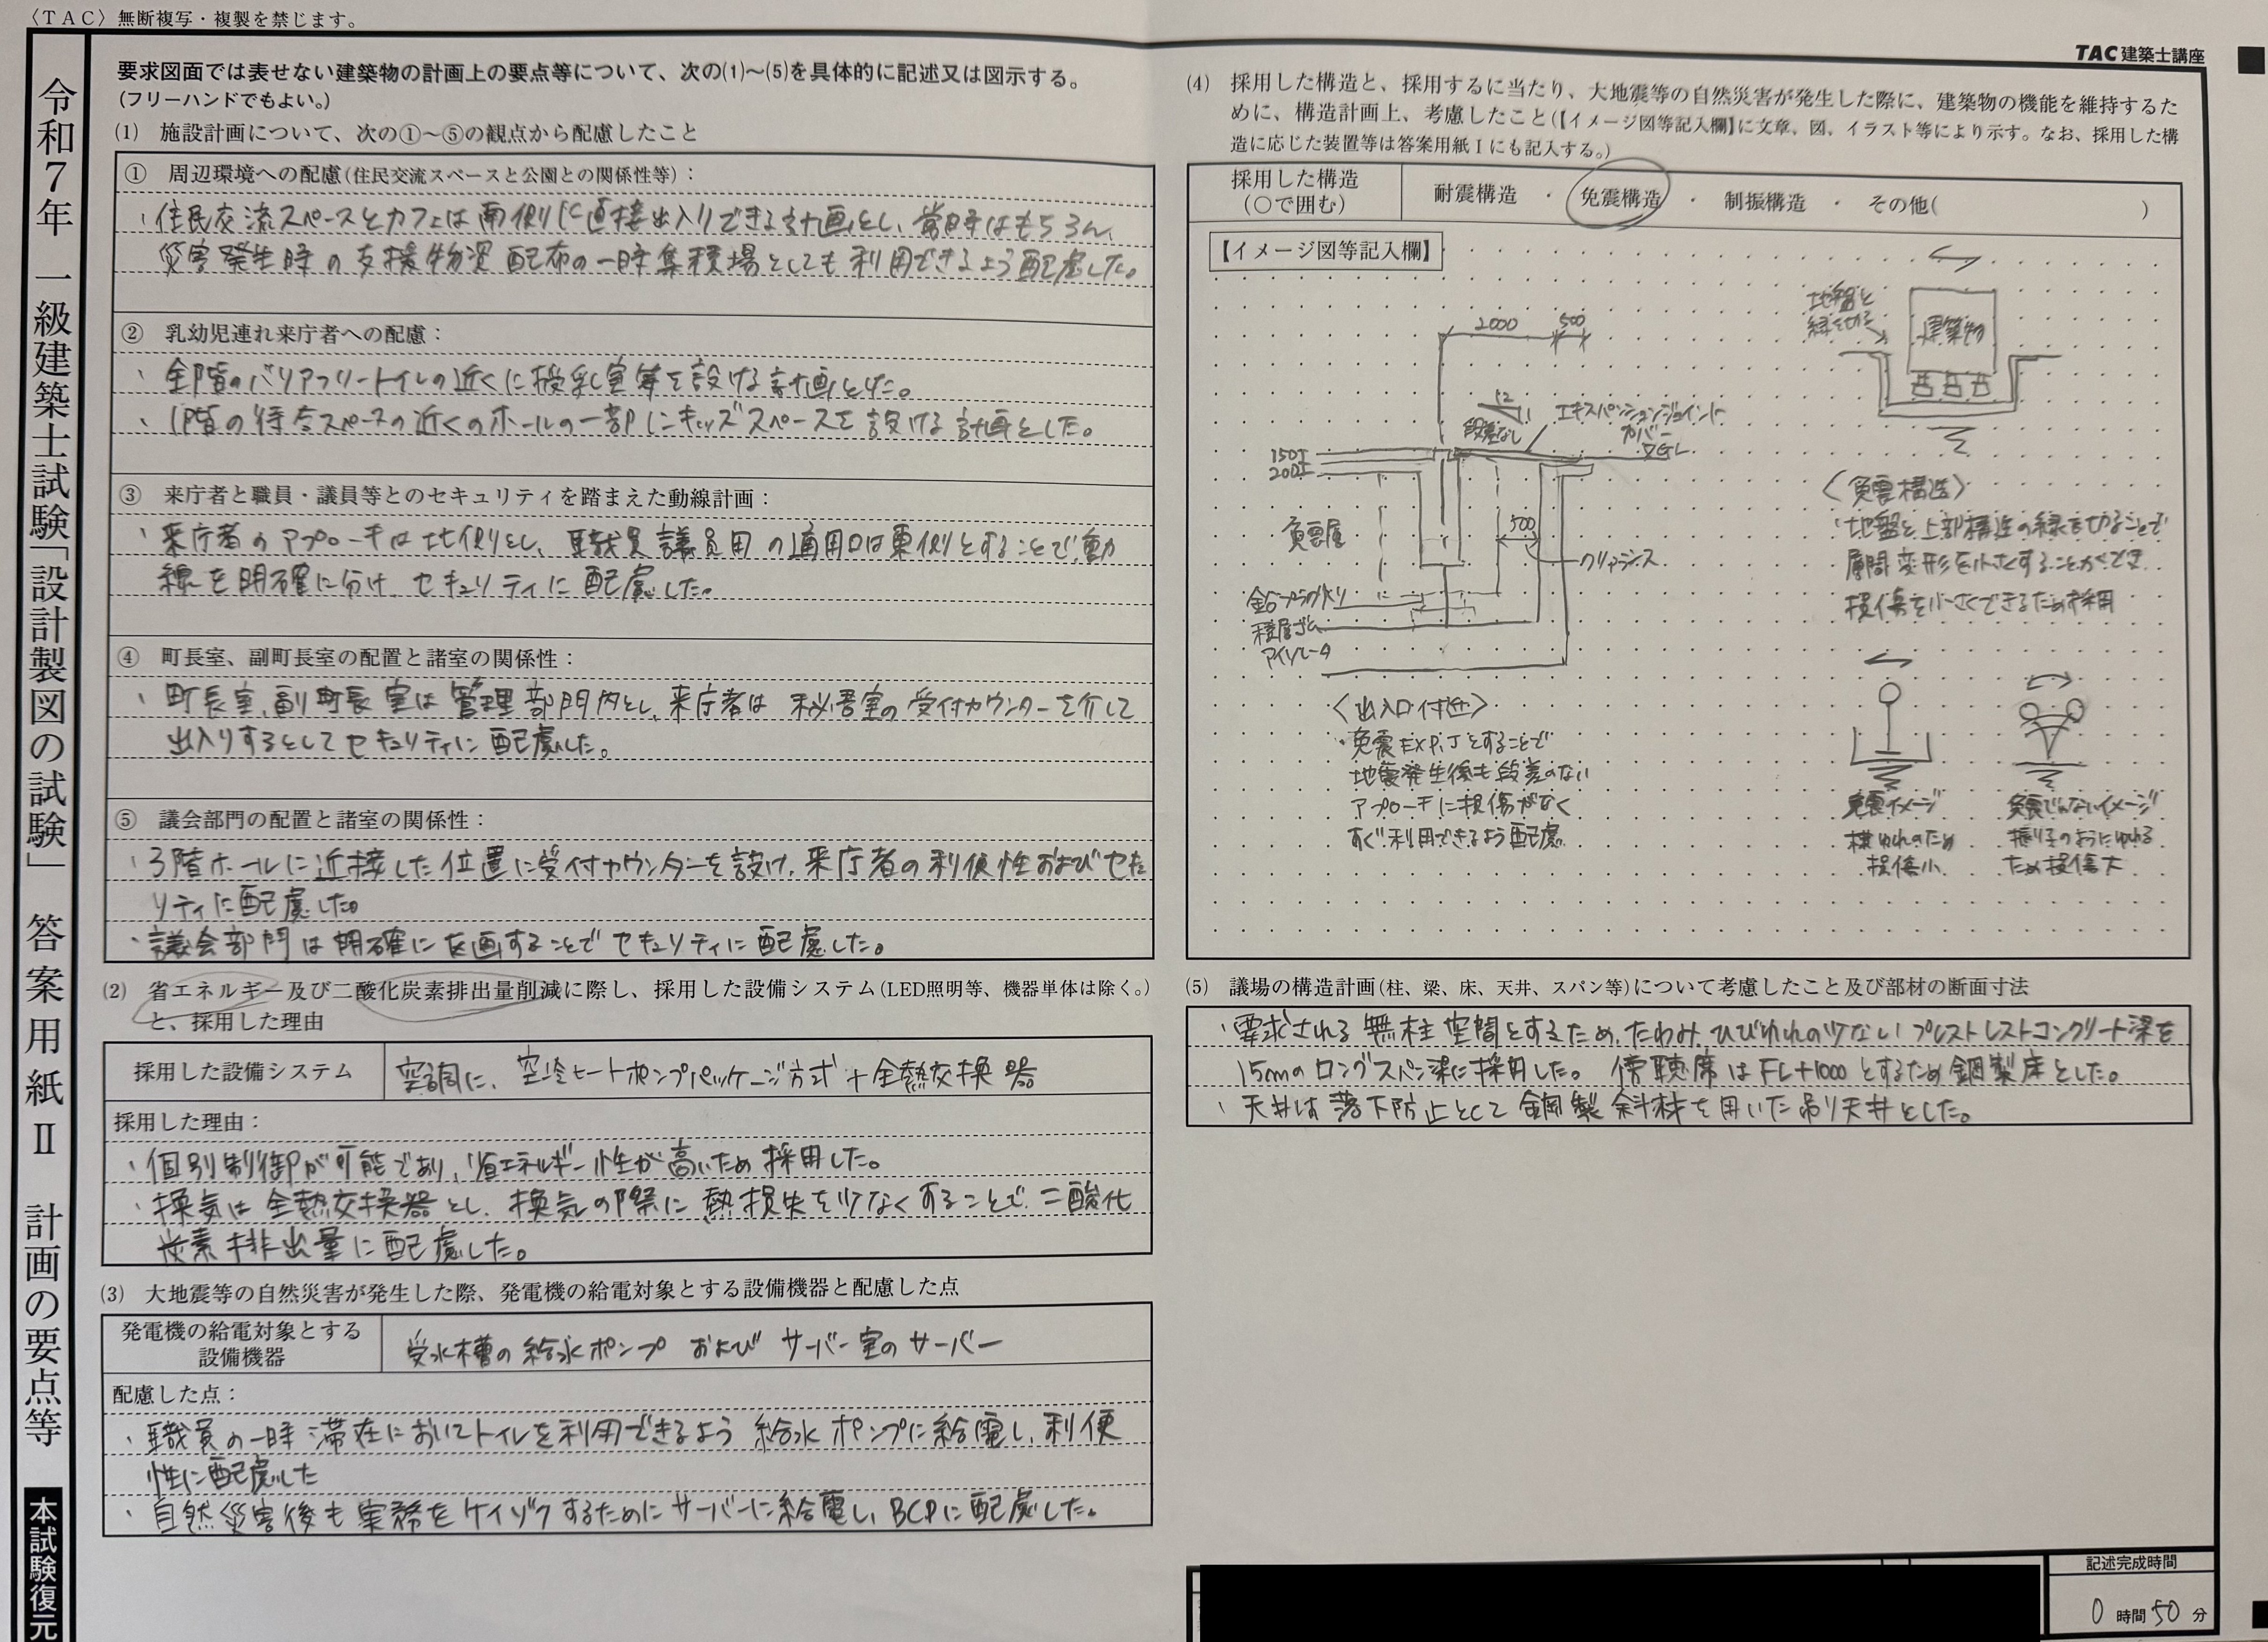 〈TAC〉無断複写・複製を禁じます。
TAC建築士講座
令和7年 一級建築士試験「設計製図の試験」 答案用紙Ⅱ 計画の要点等 本試験復元
要求図面では表せない建築物の計画上の要点等について、次の(1)～(5)を具体的に記述又は図示する。
(フリーハンドでもよい。)
(1) 施設計画について、次の①～⑤の観点から配慮したこと
① 周辺環境への配慮(住民交流スペースと公園との関係性等)：
・住民交流スペースとカフェは南側に直接出入りできる計画とし、常時はもちろん、
災害発生時の支援物資配布の一時集積場としても利用できるよう配慮した。
② 乳幼児連れ来庁者への配慮：
・全階のバリアフリートイレの近くに授乳室等を設ける計画とした。
・1階の待合スペースの近くのホールの一部にキッズスペースを設ける計画とした。
③ 来庁者と職員・議員等とのセキュリティを踏まえた動線計画：
・来庁者のアプローチは北側とし、職員議員用の通用口は東側とすることで動
線を明確に分け、セキュリティに配慮した。
④ 町長室、副町長室の配置と諸室の関係性：
・町長室、副町長室は管理部門内とし、来庁者は秘書室の受付カウンターを介して
出入りするとしてセキュリティに配慮した。
⑤ 議会部門の配置と諸室の関係性：
・3階ホールに近接した位置に受付カウンターを設け、来庁者の利便性およびセキュ
リティに配慮した。
・議会部門は明確に区画することでセキュリティに配慮した。
(2) 省エネルギー及び二酸化炭素排出量削減に際し、採用した設備システム(LED照明等、機器単体は除く。)
と、採用した理由
採用した設備システム
空調に、空冷ヒートポンプパッケージ方式＋全熱交換器
採用した理由：
・個別制御が可能であり、省エネルギー性が高いため採用した。
・換気は全熱交換器とし、換気の際に熱損失を少なくすることで、二酸化
炭素排出量に配慮した。
(3) 大地震等の自然災害が発生した際、発電機の給電対象とする設備機器と配慮した点
発電機の給電対象とする
設備機器
受水槽の給水ポンプ および サーバー室のサーバー
配慮した点：
・職員の一時滞在においてトイレを利用できるよう給水ポンプに給電し、利便
性に配慮した
・自然災害後も実務をケイゾクするためにサーバーに給電し、BCPに配慮した。
(4) 採用した構造と、採用するに当たり、大地震等の自然災害が発生した際に、建築物の機能を維持するた
めに、構造計画上、考慮したこと(【イメージ図等記入欄】に文章、図、イラスト等により示す。なお、採用した構
造に応じた装置等は答案用紙Ⅰにも記入する。)
採用した構造
(○で囲む)
耐震構造 ・ 免震構造 ・ 制振構造 ・ その他( )
【イメージ図等記入欄】
2000
500
12
1
段差なし
エキスパンションジョイント
カバー
▽GL
150
200
免震層
500
クリアランス
鉛プラグ入り
積層ゴム
アイソレータ
〈出入口付近〉
・免震EXP.Jとすることで
地震発生後も段差のない
アプローチに損傷がなく
すぐ利用できるよう配慮
地盤と
縁を切る
建築物
〈免震構造〉
・地盤と上部構造の縁を切ることで
層間変形を小さくすることができ
損傷を小さくできるため採用
免震イメージ
横ゆれのため
損傷小
免震でないイメージ
振り子のようにゆれる
ため損傷大
(5) 議場の構造計画(柱、梁、床、天井、スパン等)について考慮したこと及び部材の断面寸法
・要求される無柱空間とするため、たわみ、ひびわれの少ないプレストレストコンクリート梁を
15mのロングスパン梁に採用した。傍聴席はFL+1000とするため鋼製床とした。
・天井は落下防止として鋼製斜材を用いた吊り天井とした。
記述完成時間
0 時間 50 分